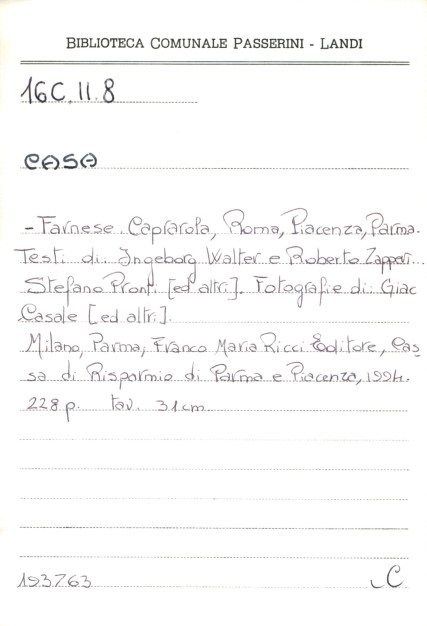 BIBLIOTECA COMUNALE PASSERINI - LANDI
16C.II.8
CASA
- Farnese. Caprarola, Roma, Piacenza, Parma.
Testi di Ingeborg Walter e Roberto Zapperi..
Stefano Pronti [ed altri]. Fotografie di Giac
Casale [ed altri].
Milano, Parma, Franco Maria Ricci Editore, Cas
sa di Risparmio di Parma e Piacenza, 1994.
228 p. tav. 31 cm
193763 C